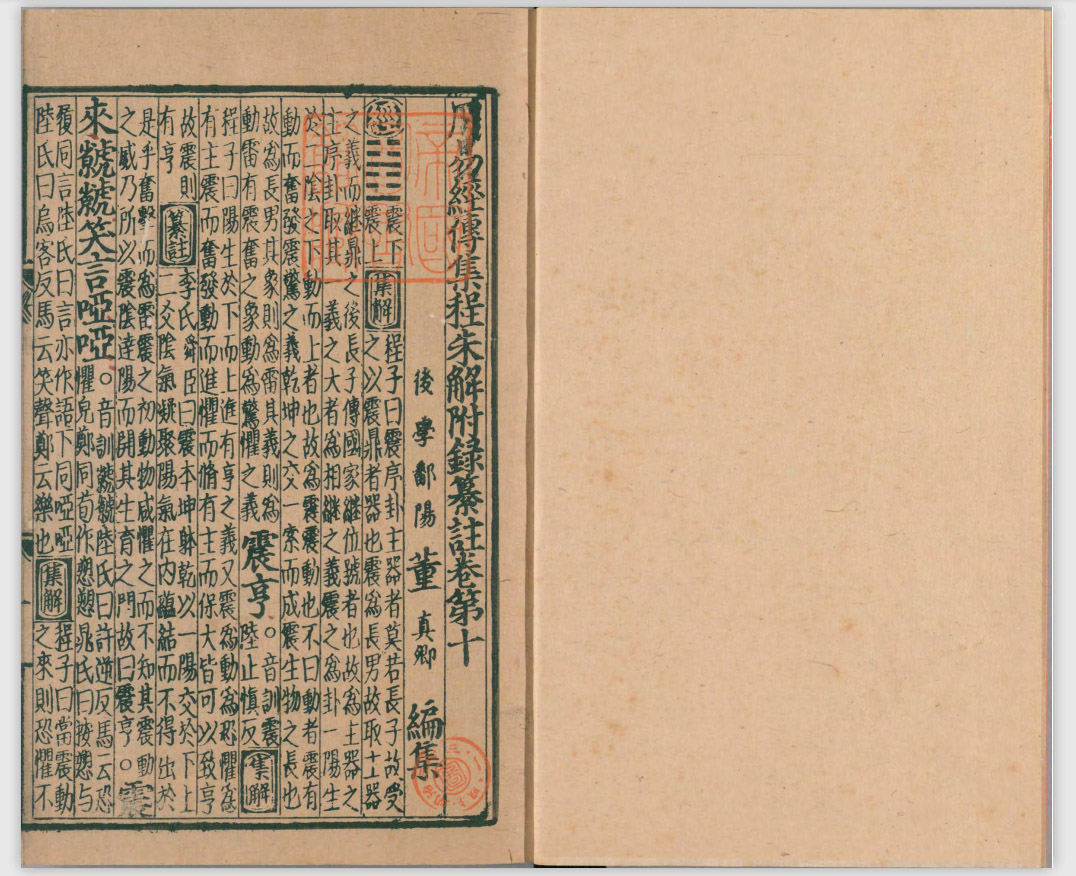 周易經傳集程朱解附録纂註卷第十
後學鄱陽董真卿編集
經 ䷲ 震下震上 集解 程子曰震序卦主器者莫若長子故受
之以震鼎者器也震爲長男故取主器
之義而繼鼎之後長子傳國家繼位號者也故爲主器之
主序卦取其一義之大者爲相繼之義震之爲卦一陽生
於二陰之下動而上者也故爲震震動也不曰動者震有
動而奮發震驚之義乾坤之交一索而成震生物之長也
故爲長男其象則爲雷其義則爲
動雷有震奮之象動爲驚懼之義
震亨○音訓震陸止愼反 集解
程子曰陽生於下而上進有亨之義又震爲動爲恐懼爲
有主震而奮發動而進懼而脩有主而保大皆可以致亨
故震則
有亨
纂註 李氏舜臣曰震本坤躰乾以一陽交於下上
二爻陰氣凝聚陽氣在内蘊結而不得出於
是乎奮擊而爲雷震之初動物咸懼之而不知其震動
之威乃所以震陰達陽而開其生育之門故曰震亨○震
來虩虩笑言啞啞○音訓虩虩陸氏曰許逆反馬云恐
懼皃鄭同荀作愬愬晁氏曰按愬與
覆同言陸氏曰言亦作語下同啞啞
陸氏曰烏客反馬云笑聲鄭云樂也
集解 程子曰當震動
之來則恐懼不